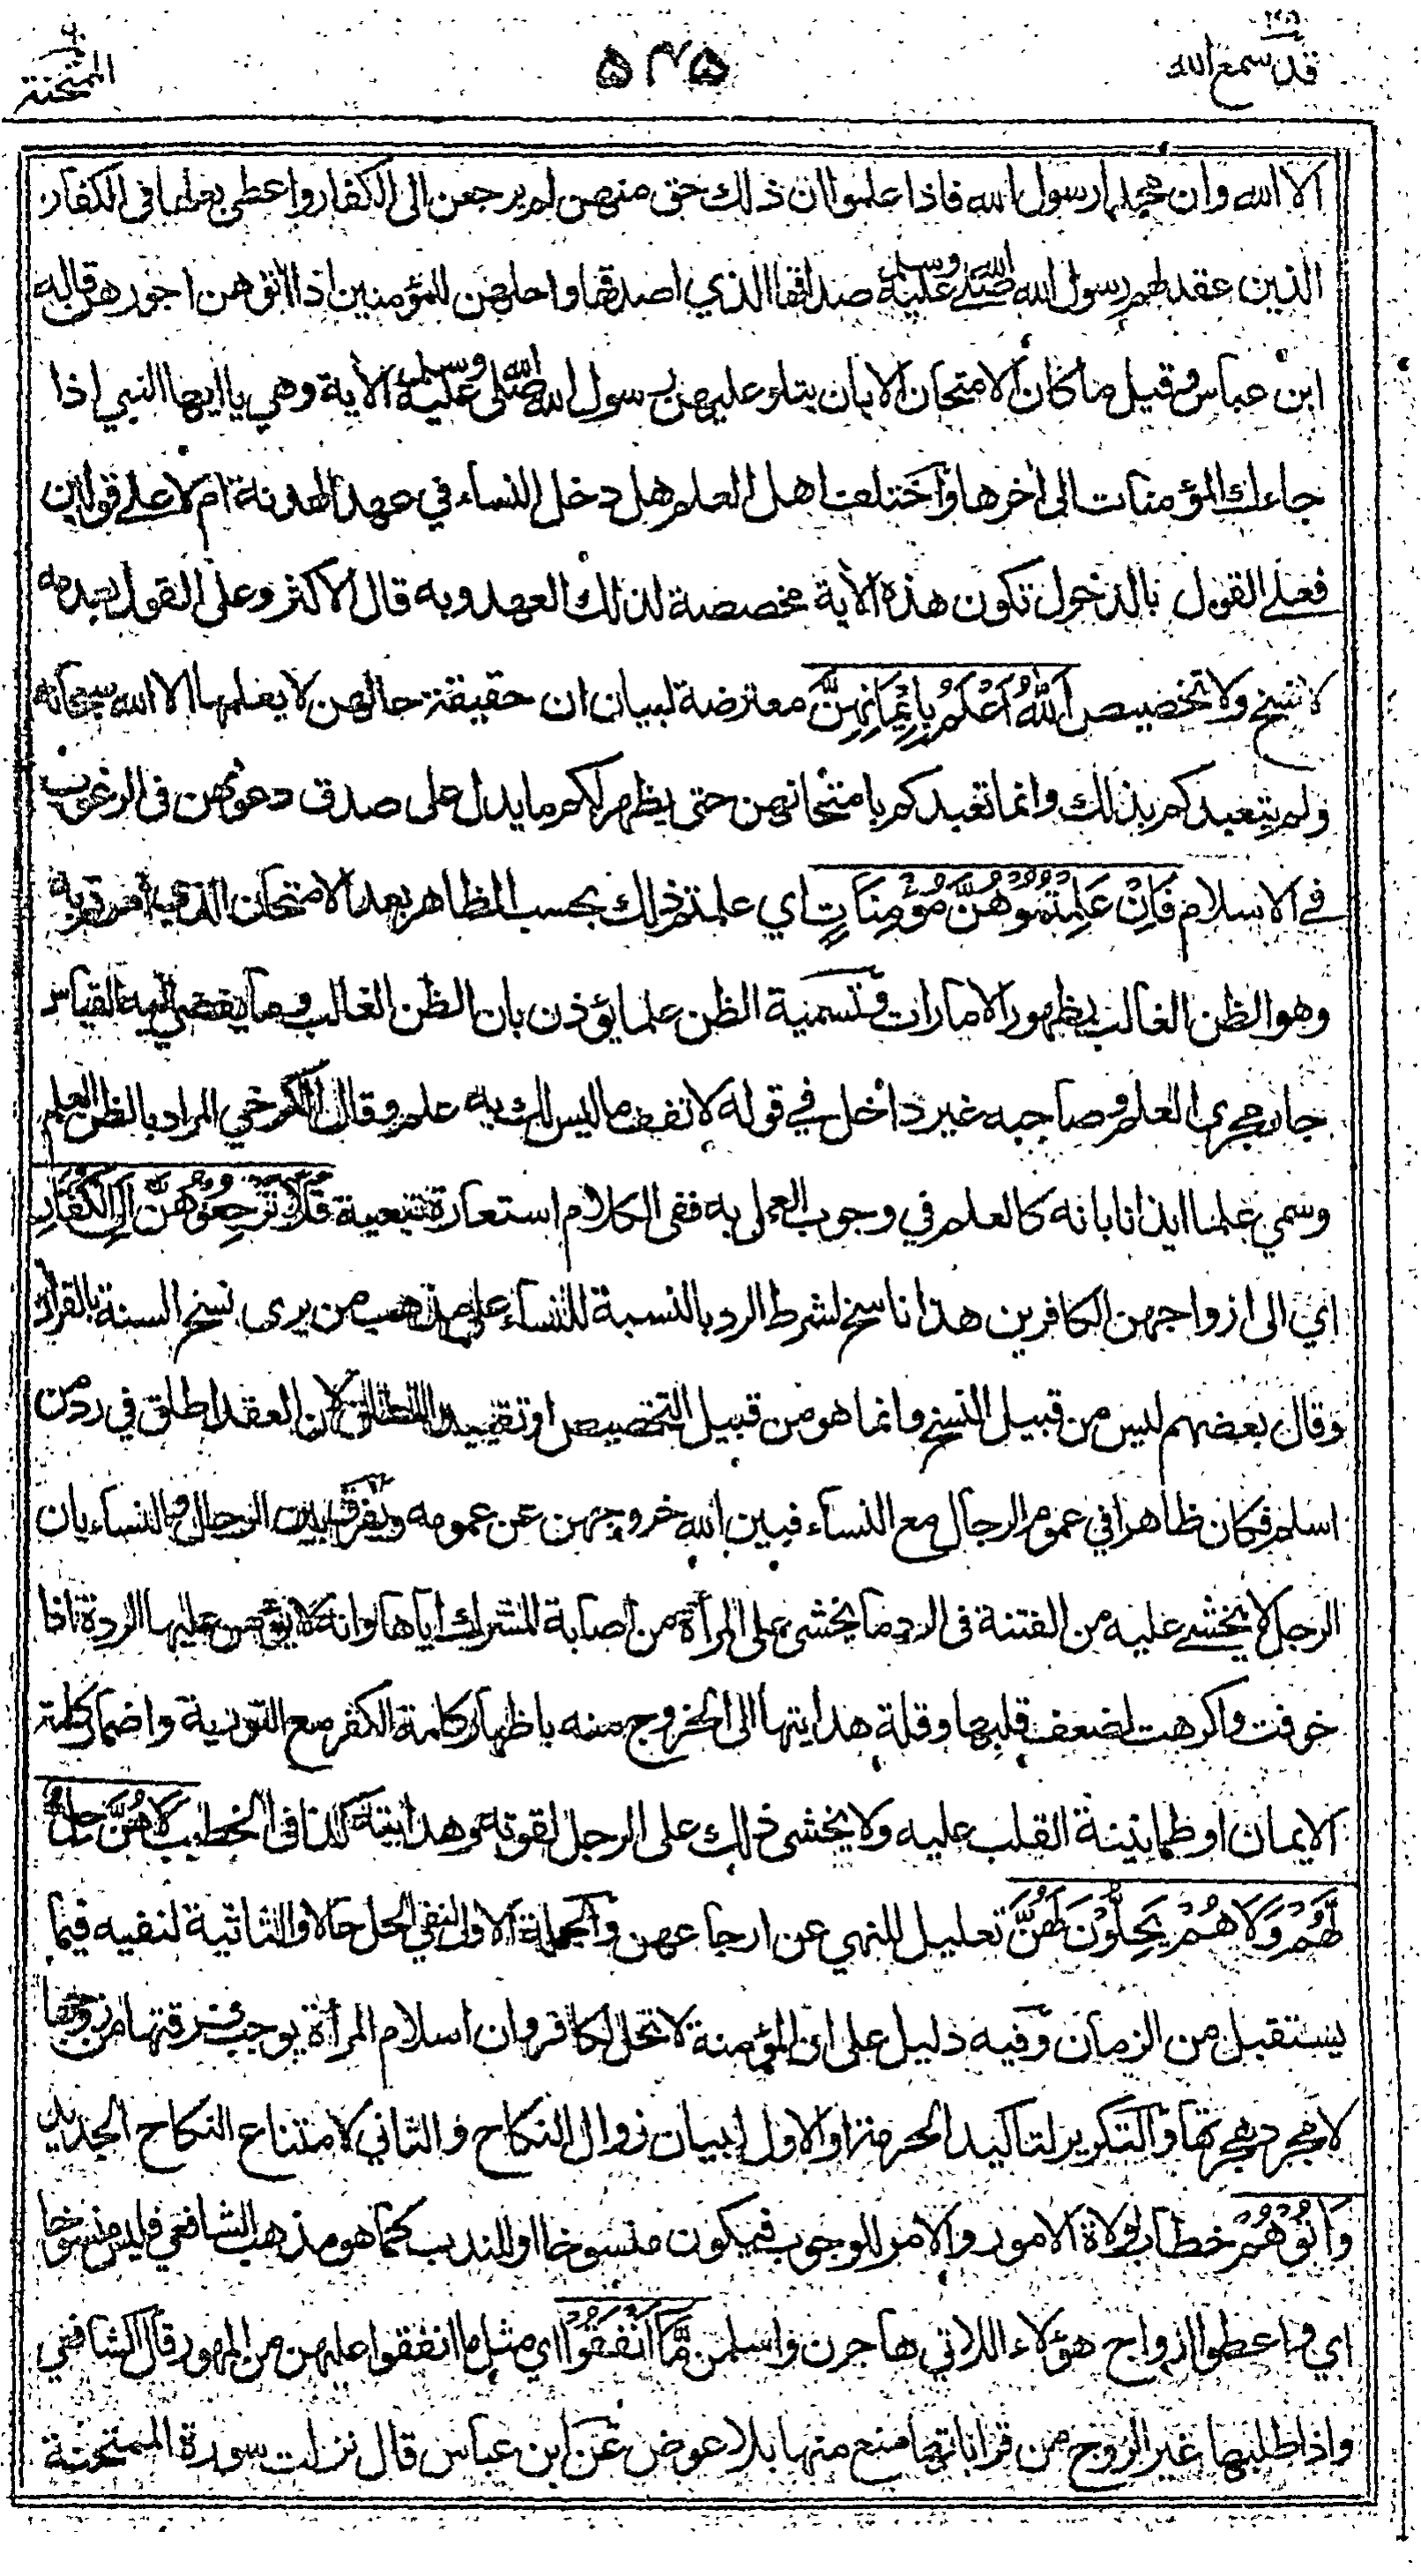 قد سمع الله
٥٤٥
الممتحنة
الا الله وان محمدا رسول الله فاذا علموا ان ذلك حق منهن لم يرجعن الى الكفار واعطى بعلها فى الكفار
الذين عقد لهم رسول الله صلى الله عليه وسلم صداقها الذي اصدقها واحلهن للمؤمنين اذا اتوهن اجورهن قاله
ابن عباس وقيل ما كان الامتحان الا بان يتلو عليهن رسول الله صلى الله عليه وسلم الأية وهي يا ايها النبي اذا
جاءك المؤمنات الى اخرها واختلف اهل العلم هل دخل النساء في عهد الهدنة ام لا على قولين
فعلى القول بالدخول تكون هذه الأية مخصصة لذلك العهد وبه قال الاكثر وعلى القول بعدمه
لا نسخ ولا تخصيص اَللّٰهُ اَعْلَمُ بِاِيْمَانِهِنَّ معترضة لبيان ان حقيقة حالهن لا يعلمها الا الله سبحانه
ولم يتعبدكم بذلك وانما تعبدكم بامتحانهن حتى يظهر لكم ما يدل على صدق دعوتهن فى الرغوب
في الاسلام فَاِنْ عَلِمْتُمُوْهُنَّ مُؤْمِنَاتٍ اي علمتم ذلك بحسب الظاهر بعد الامتحان الذي امرتم به
وهو الظن الغالب بظهور الامارات وتسمية الظن علما يؤذن بان الظن الغالب وما يفضي اليه القياس
جار مجرى العلم وصاحبه غير داخل في قوله لا تقف ما ليس لك به علم وقال الكرخي المراد بالظن العلم
وسمي علما ايذانا بانه كالعلم في وجوب العمل به ففى الكلام استعارة تبعية فَلَا تَرْجِعُوْهُنَّ اِلَى الْكُفَّارِ
اي الى ازواجهن الكافرين هذا ناسخ لشرط الرد بالنسبة للنساء على مذهب من يرى نسخ السنة بالقرآن
وقال بعضهم ليس من قبيل النسخ وانما هو من قبيل التخصيص او تقييد المطلق لان العقد اطلق في رد من
اسلم فكان ظاهرا في عموم الرجال مع النساء فبين الله خروجهن عن عمومه ويفرق بين الرجال والنساء بان
الرجل لا يخشى عليه من الفتنة فى الرد ما يخشى على المرأة من اصابة المشرك اياها وانه لا يؤمن عليها الردة اذا
خوفت واكرهت لضعف قلبها وقلة هدايتها الى الخروج منه باظهار كلمة الكفر مع التورية واضمار كلمة
الايمان او طمانينة القلب عليه ولا يخشى ذلك على الرجل لقوته وهدايته كذا فى الخطيب لَا هُنَّ حِلٌّ
لَّهُمْ وَلَا هُمْ يَحِلُّوْنَ لَهُنَّ تعليل للنهي عن ارجاعهن والجملة الاولى لنفي الحل حالا والثانية لنفيه فيما
يستقبل من الزمان وفيه دليل على ان المؤمنة لا تحل لكافر وان اسلام المرأة يوجب فرقتها من زوجها
لا مجرد هجرتها والتكرير لتاكيد الحرمة او الاول لبيان زوال النكاح والثاني لامتناع النكاح الجديد
وَاٰتُوْهُمْ خطاب لولاة الامور والامر للوجوب فيكون منسوخا او للندب كما هو مذهب الشافعي فليس منسوخا
اي واعطوا ازواج هؤلاء اللاتي هاجرن واسلمن مَّا اَنْفَقُوْا اي مثل ما انفقوا عليهن من المهور قال الشافعي
واذا طلبها غير الزوج من قراباتها منع منها بلا عوض عن ابن عباس قال نزلت سورة الممتحنة